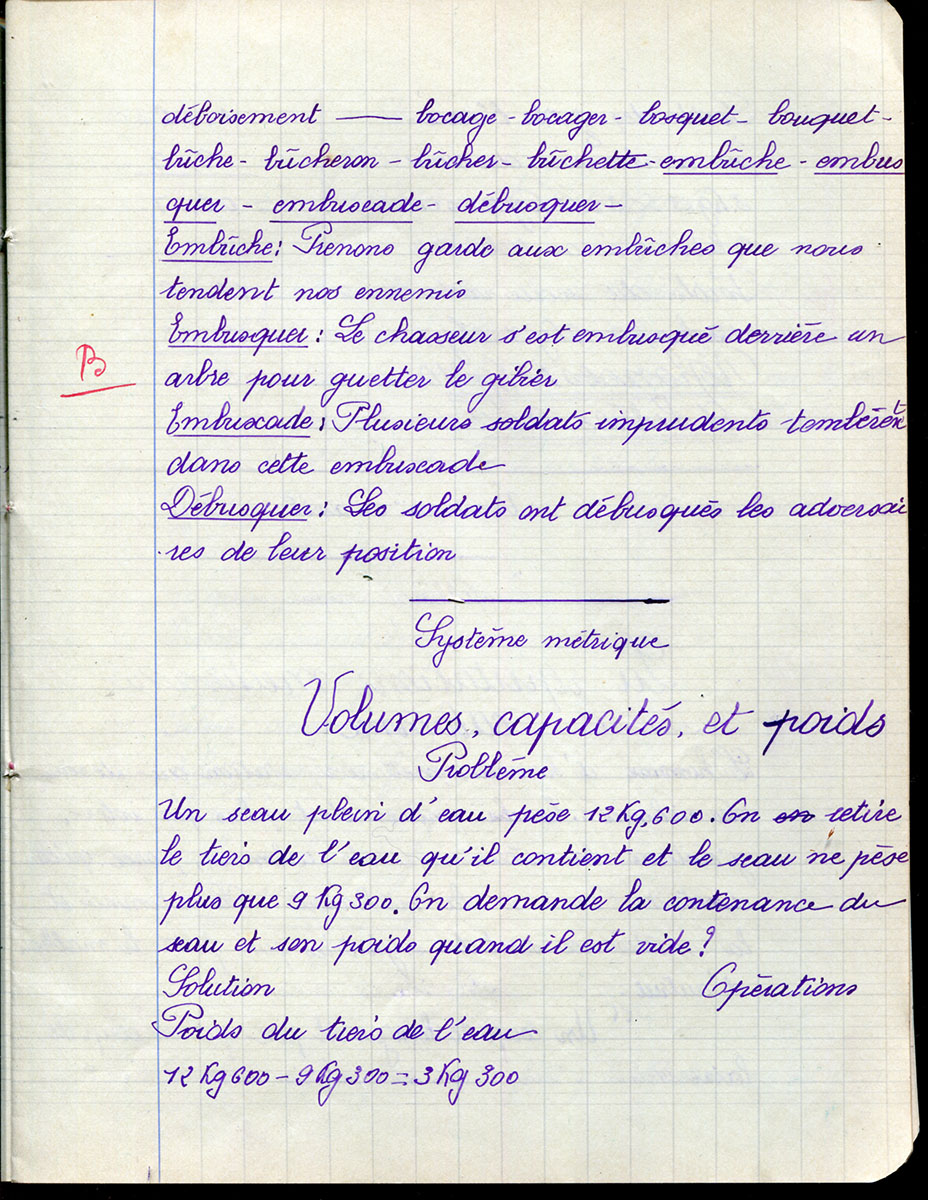 déboisement — bocage - bocager - bosquet - bouquet -
bûche - bûcheron - bûcher - bûchette - embûche - embus
quer - embuscade - débusquer -
Embûche : Prenons garde aux embûches que nous
tendent nos ennemis
B
Embusquer : Le chasseur s'est embusqué derrière un
arbre pour guetter le gibier
Embuscade : Plusieurs soldats imprudents tombèrent
dans cette embuscade
Débusquer : Les soldats ont débusqués les adversai
res de leur position
Système métrique
Volumes, capacités, et poids
Problème
Un seau plein d'eau pèse 12 Kg, 600. On en retire
le tiers de l'eau qu'il contient et le seau ne pèse
plus que 9 Kg 300. On demande la contenance du
seau et son poids quand il est vide ?
Solution Opérations
Poids du tiers de l'eau
12 Kg 600 - 9 Kg 300 = 3 Kg 300